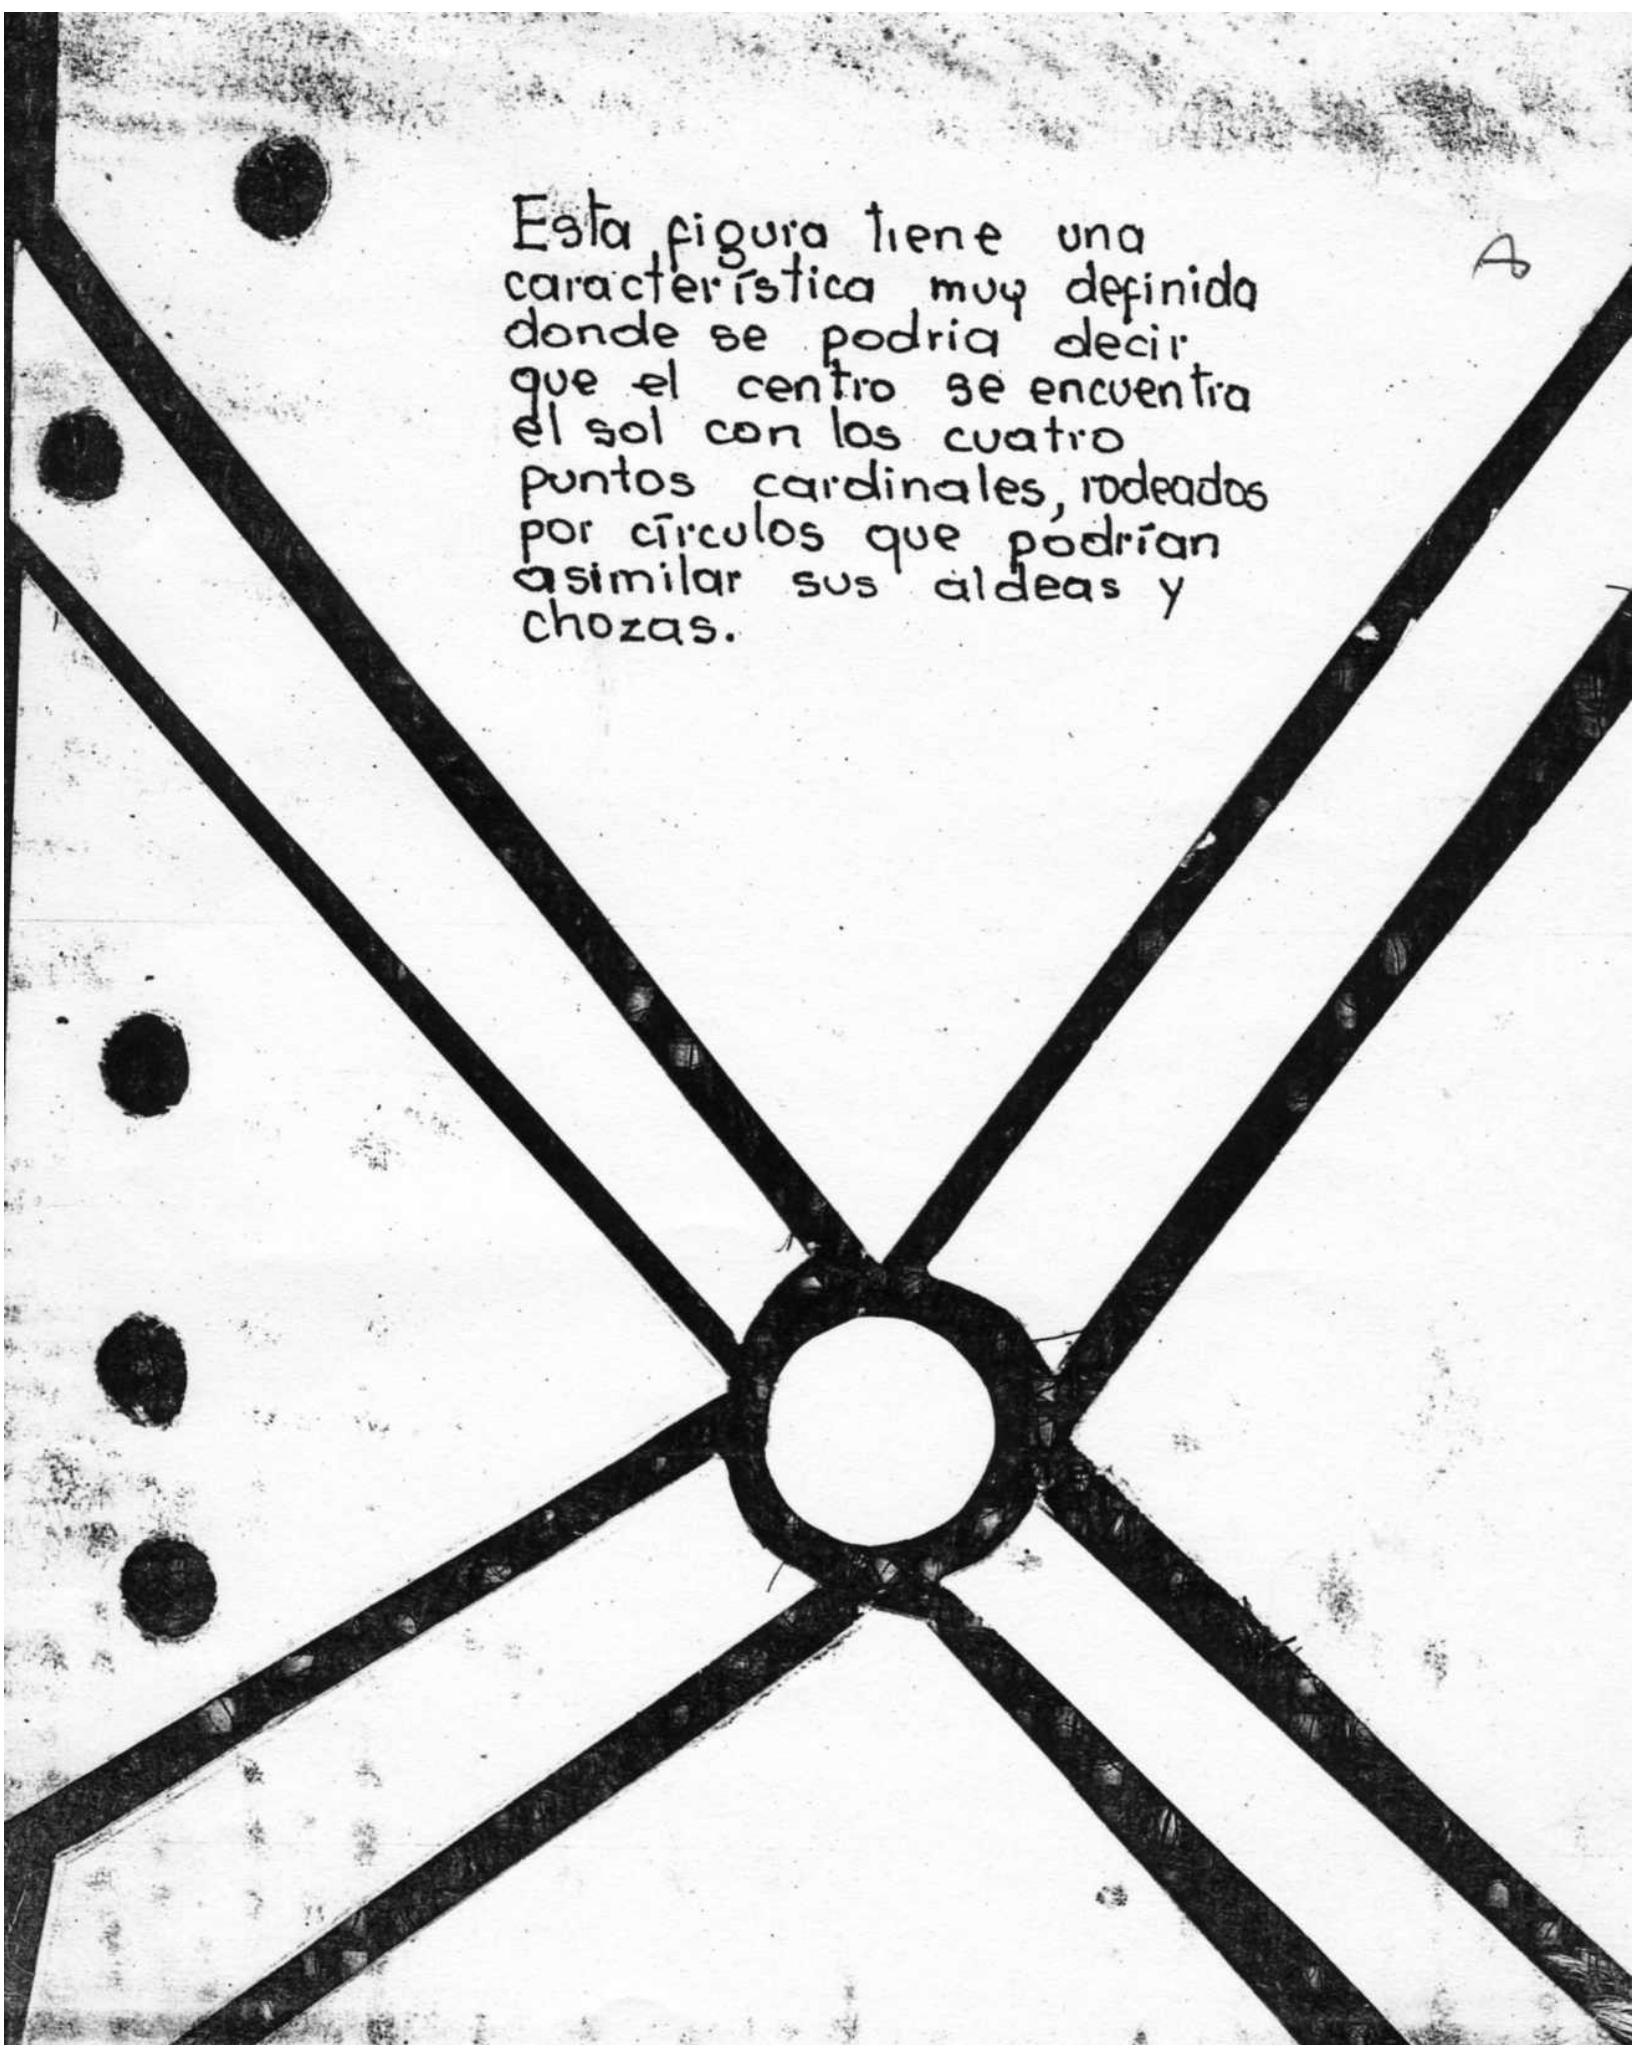 Esta figura tiene una
característica muy definida
donde se podria decir
que el centro se encuentra
el sol con los cuatro
puntos cardinales, rodeados
por círculos que podrían
asimilar sus aldeas y
chozas.